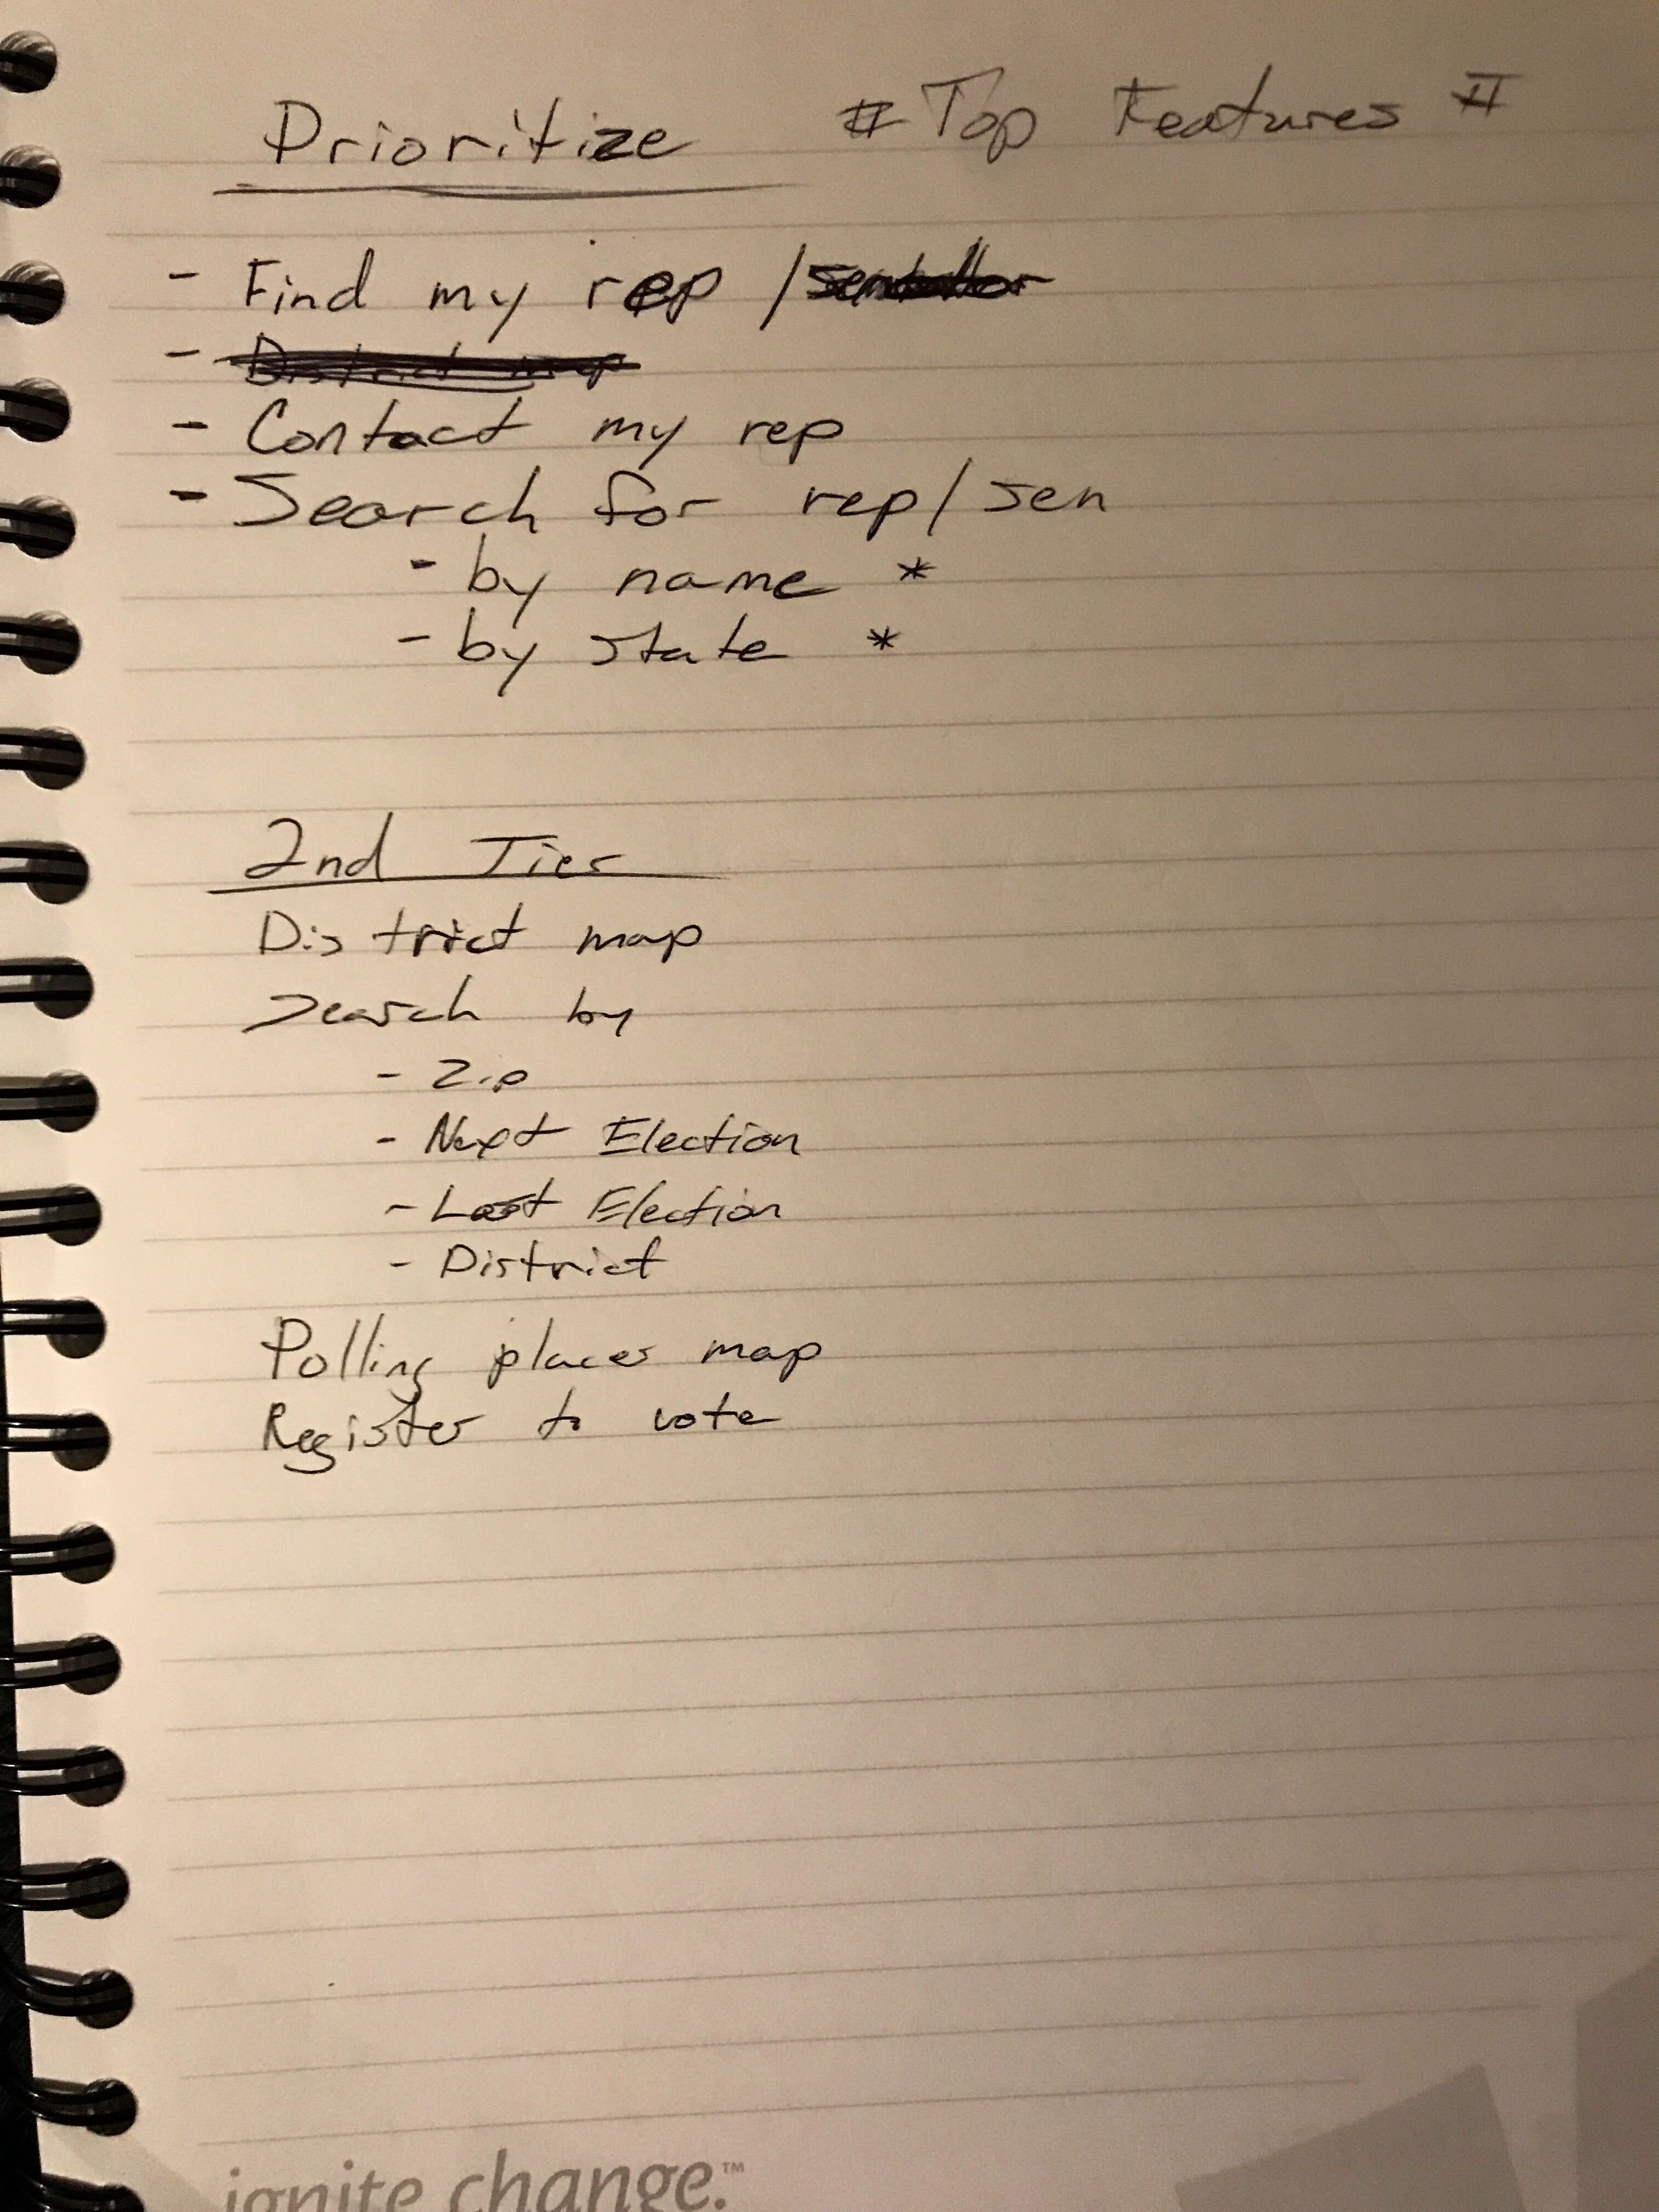 Prioritize # Top Features #
- Find my rep / senator
- District map
- Contact my rep
- Search for rep/sen
- by name *
- by state *
2nd Tier
District map
Search by
- Zip
- Next Election
- Last Election
- District
Polling places map
Register to vote
ignite change.™